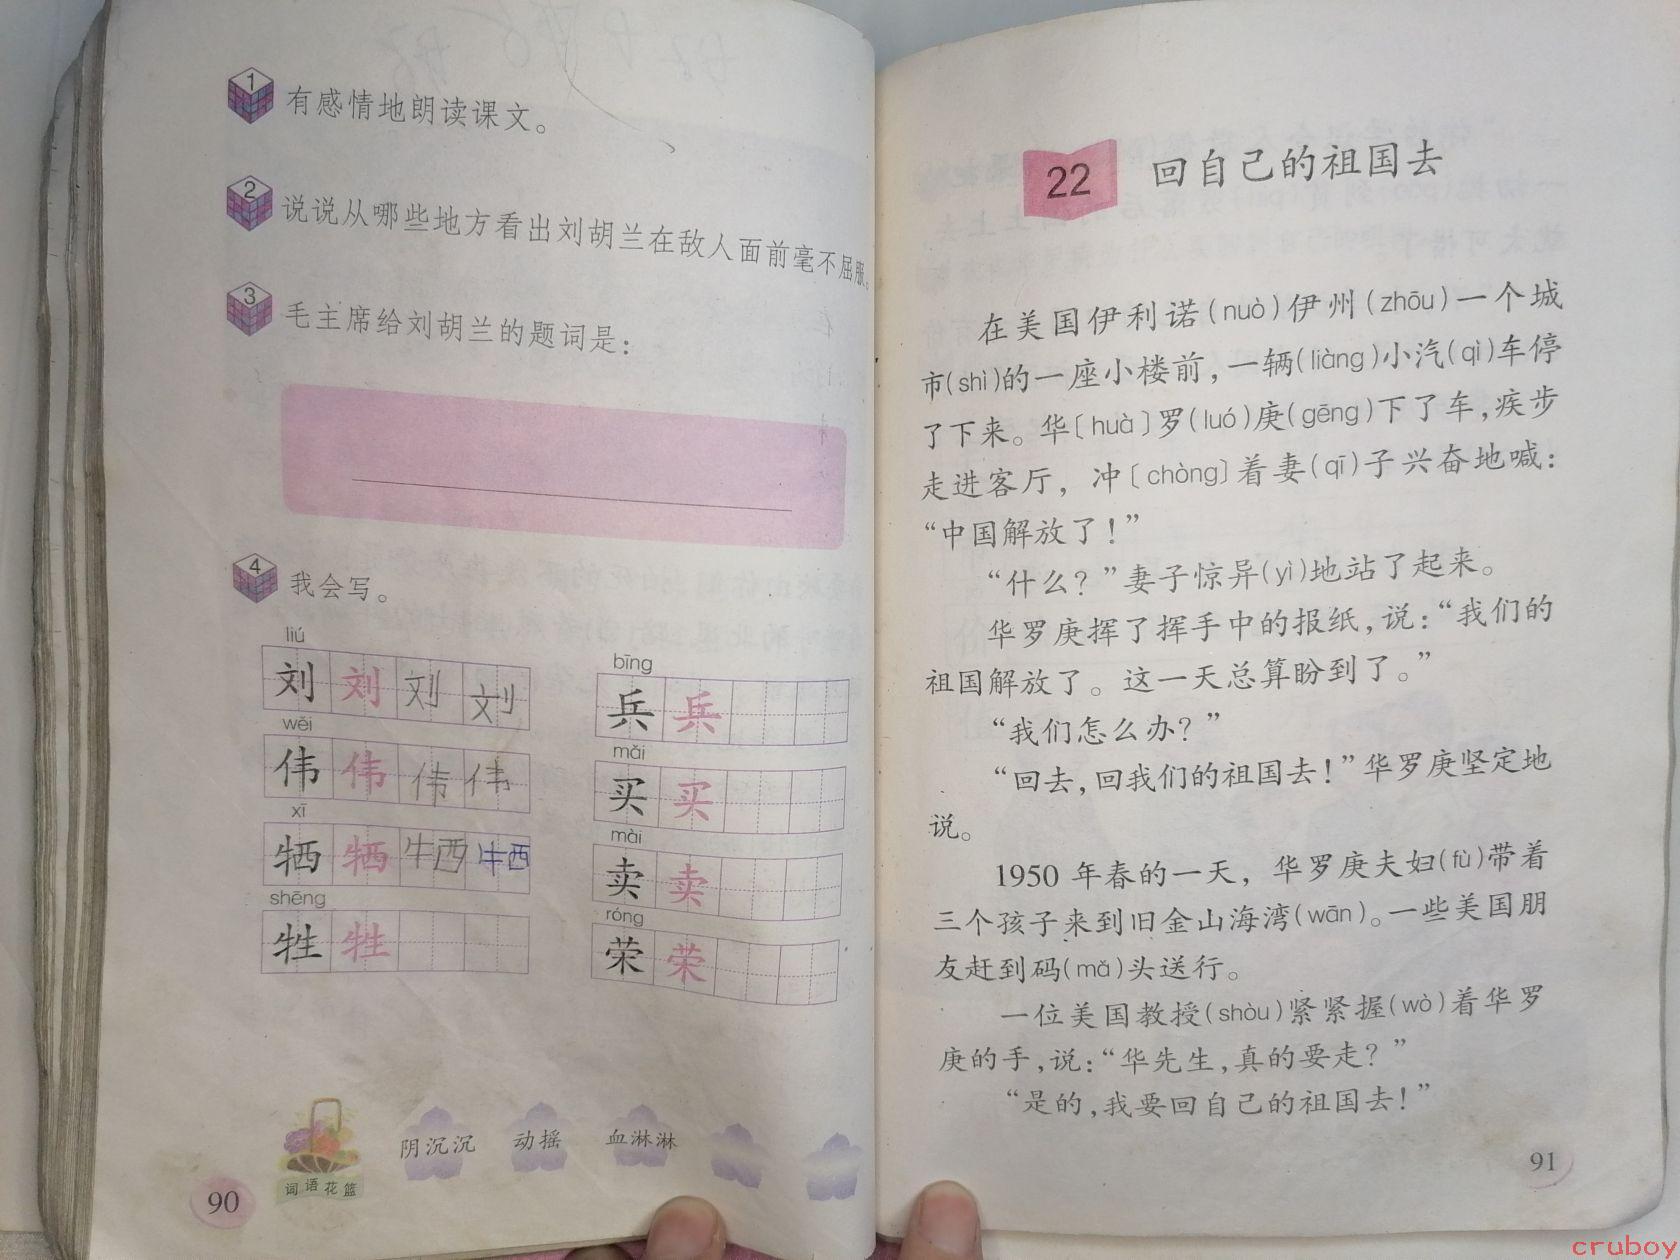 1 有感情地朗读课文。
2 说说从哪些地方看出刘胡兰在敌人面前毫不屈服。
3 毛主席给刘胡兰的题词是：
4 我会写。
liú
刘 刘 刘 刘
wěi
伟 伟 伟 伟
xī
牺 牺 牺 牺
shēng
牲 牲
bīng
兵 兵
mǎi
买 买
mài
卖 卖
róng
荣 荣
词语花篮
阴沉沉 动摇 血淋淋
90
22 回自己的祖国去
在美国伊利诺(nuò)伊州(zhōu)一个城
市(shì)的一座小楼前，一辆(liàng)小汽(qì)车停
了下来。华〔huà〕罗(luó)庚(gēng)下了车，疾步
走进客厅，冲〔chòng〕着妻(qī)子兴奋地喊：
“中国解放了！”
“什么？”妻子惊异(yì)地站了起来。
华罗庚挥了挥手中的报纸，说：“我们的
祖国解放了。这一天总算盼到了。”
“我们怎么办？”
“回去，回我们的祖国去！”华罗庚坚定地
说。
1950年春的一天，华罗庚夫妇(fù)带着
三个孩子来到旧金山海湾(wān)。一些美国朋
友赶到码(mǎ)头送行。
一位美国教授(shòu)紧紧握(wò)着华罗
庚的手，说：“华先生，真的要走？”
“是的，我要回自己的祖国去！”
91
cruboy